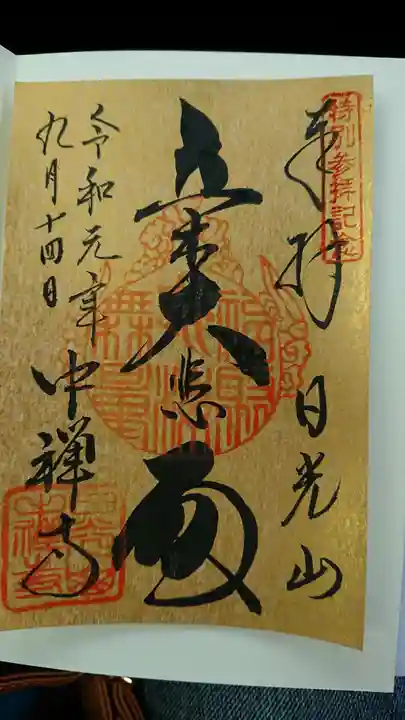 特別参拝記念
奉拝 日光山
立木大悲閣
令和元年
九月十四日
中禅寺